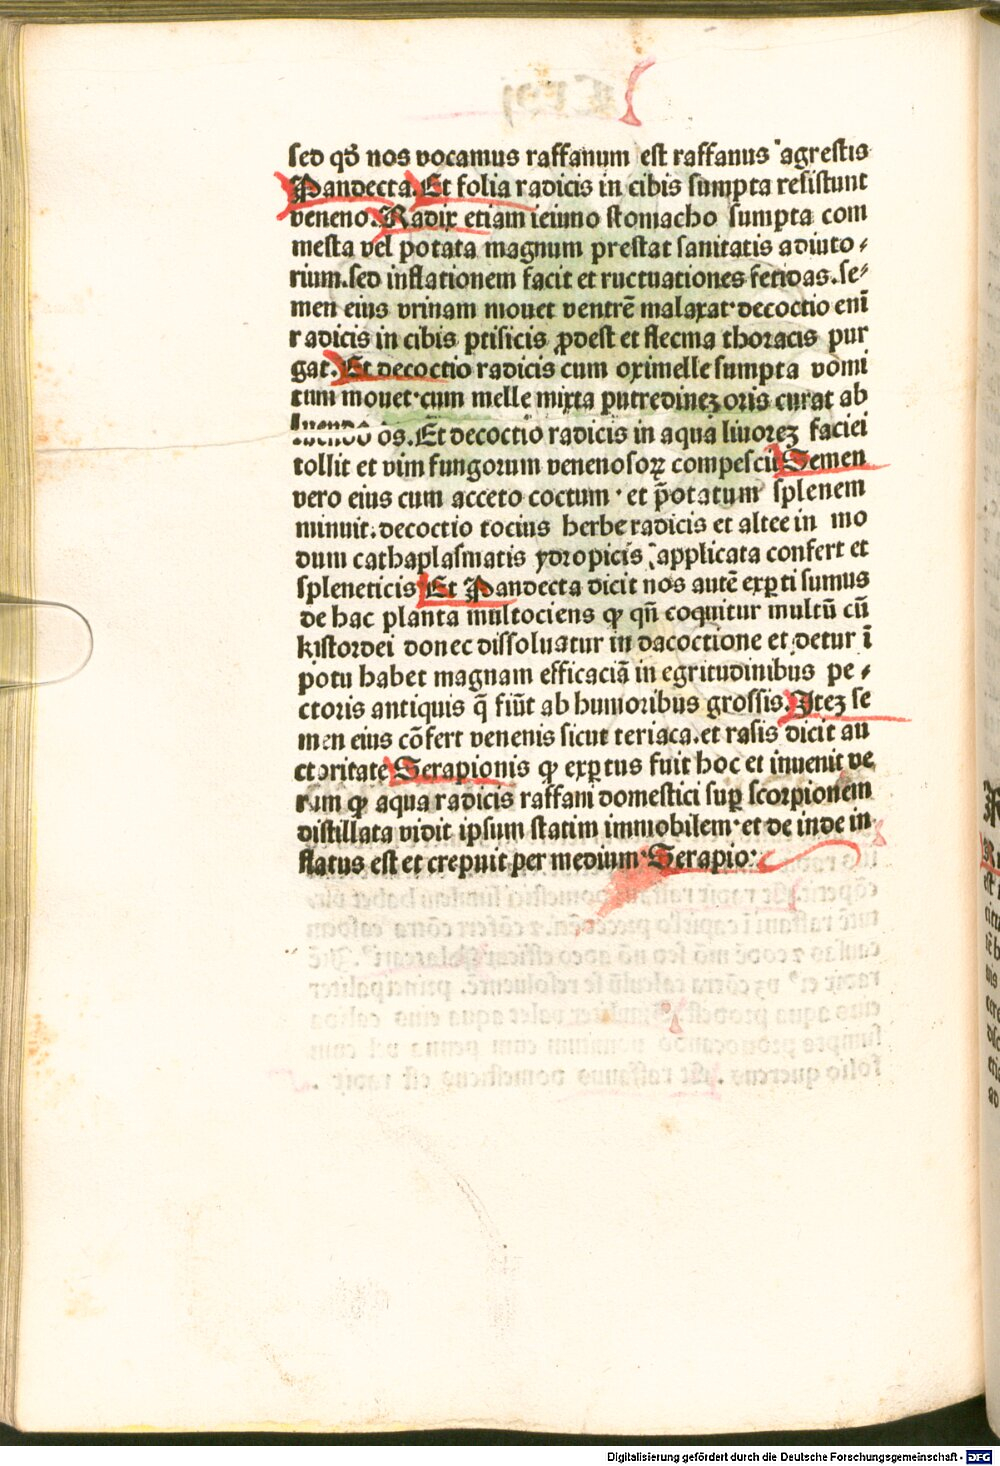 sed qđ nos vocamus raffanum est raffanus agrestis
Pandecta. Et folia radicis in cibis sumpta resistunt
veneno. Radix etiam ieiuno stomacho sumpta com
mesta vel potata magnum prestat sanitatis adiuto⸗
rium. sed inflationem facit et ructuationes fetidas. se⸗
men eius vrinam mouet ventrē malaxat. decoctio enī
radicis in cibis ptisicis ꝓdest et flecma thoracis pur
gat. Et decoctio radicis cum oximelle sumpta vomi
tum mouet. cum melle mixta putredinez oris curat ab
luendo os. Et decoctio radicis in aqua liuorez faciei
tollit et vim fungorum venenosoꝝ compescit Semen
vero eius cum acceto coctum. et p̄otatum splenem
minuit. decoctio tocius herbe radicis et altee in mo
dum cathaplasmatis ydropicis applicata confert et
spleneticis Et Pandecta dicit nos autē exꝑti sumus
de hac planta multociens ꝙ qn̄ coquitur multū cū
kistordei donec dissoluatur in dacoctione et detur ī
potu habet magnam efficaciā in egritudinibus pe⸗
ctoris antiquis q̄ fiūt ab humoribus grossis. Itez se
men eius cōfert venenis sicut teriaca. et rasis dicit au
ctoritate Serapionis ꝙ exꝑtus fuit hoc et inuenit ve
rum ꝙ aqua radicis raffani domestici suꝑ scorpionem
distillata vidit ipsum statim immobilem. et de inde in
flatus est et crepuit per medium. Serapio.
Digitalisierung gefördert durch die Deutsche Forschungsgemeinschaft - DFG